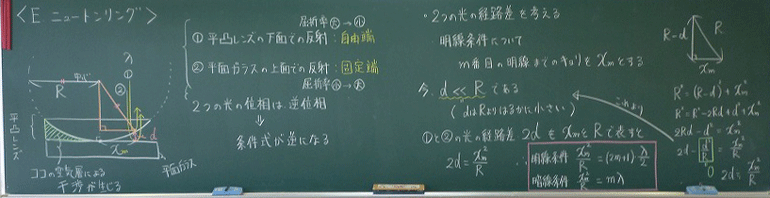 〈E.ニュートンリング〉
中心
R
λ
①
②
d
xm
平凸レンズ
平面ガラス
ココの空気層による
干渉が生じる
屈折率 大→小
① 平凸レンズの下面での反射:自由端
② 平面ガラスの上面での反射:固定端
屈折率 小→大
2つの光の位相は逆位相
⇓
条件式が逆になる
・2つの光の経路差を考える
明線条件について
m番目の明線までのキョリをxmとする
今、d << R である
(dはRよりはるかに小さい)
①と②の光の経路差 2d を xmとRで表すと
2d = xm²/R
∴
明線条件 xm²/R = (2m+1) λ/2
暗線条件 xm²/R = mλ
これより
R-d
R
xm
R² = (R-d)² + xm²
R² = R² - 2Rd + d² + xm²
2Rd - d² = xm²
2d - d²/R = xm²/R
0
2d = xm²/R